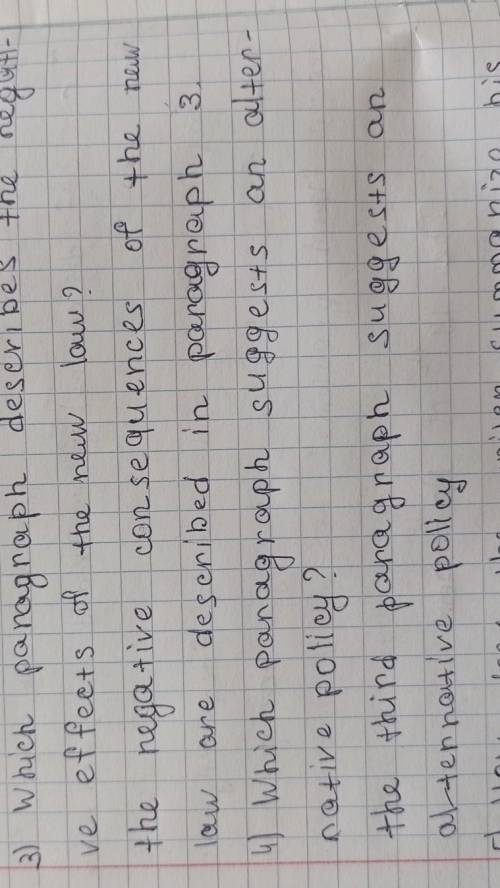 3) Which paragraph describes the negati-
ve effects of the new law?
the negative consequences of the new
law are described in paragraph 3.
4) Which paragraph suggests an alter-
native policy?
the third paragraph suggests an
alternative policy